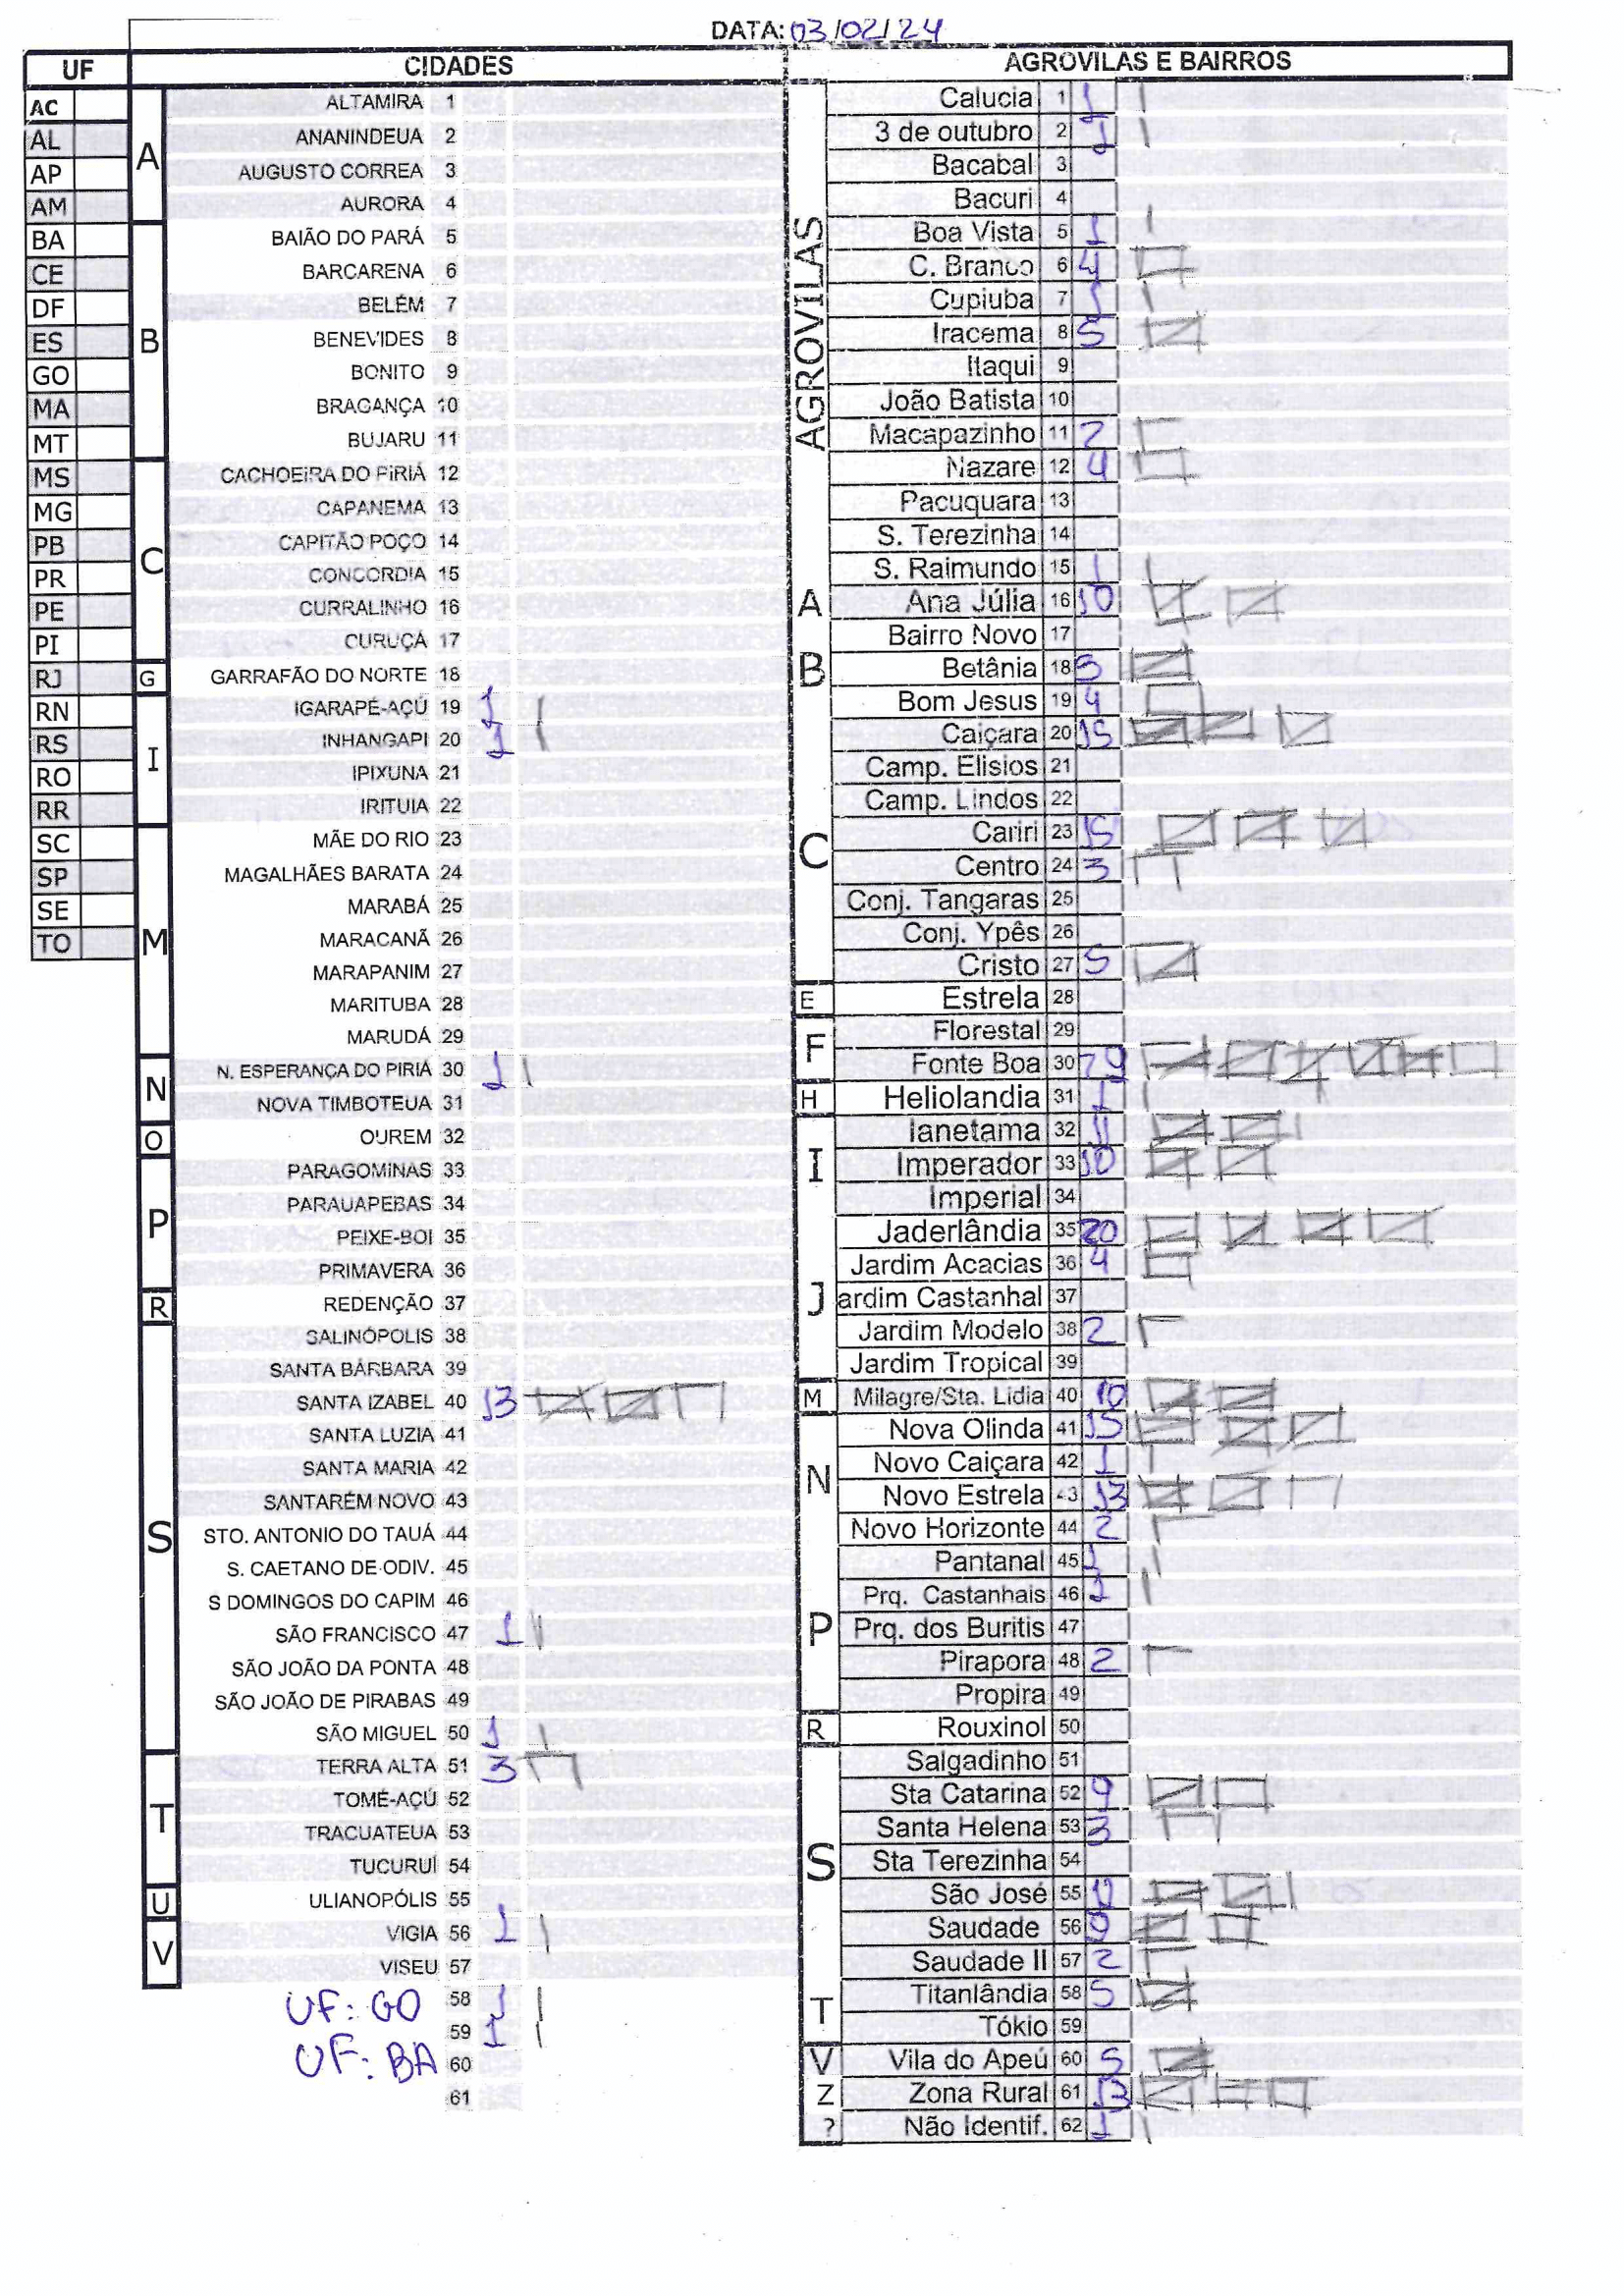 DATA: 03/02/24
UF CIDADES AGROVILAS E BAIRROS
AC
AL
AP
AM
BA
CE
DF
ES
GO
MA
MT
MS
MG
PB
PR
PE
PI
RJ
RN
RS
RO
RR
SC
SP
SE
TO
A
ALTAMIRA 1
ANANINDEUA 2
AUGUSTO CORREA 3
AURORA 4
B
BAIÃO DO PARÁ 5
BARCARENA 6
BELÉM 7
BENEVIDES 8
BONITO 9
BRAGANÇA 10
BUJARU 11
C
CACHOEIRA DO PIRIÁ 12
CAPANEMA 13
CAPITÃO POÇO 14
CONCORDIA 15
CURRALINHO 16
CURUÇÁ 17
G
GARRAFÃO DO NORTE 18
I
IGARAPÉ-AÇÚ 19 1
INHANGAPI 20 1
IPIXUNA 21
IRITUIA 22
M
MÃE DO RIO 23
MAGALHÃES BARATA 24
MARABÁ 25
MARACANÃ 26
MARAPANIM 27
MARITUBA 28
MARUDÁ 29
N
N. ESPERANÇA DO PIRIÁ 30 1
NOVA TIMBOTEUA 31
O
OUREM 32
P
PARAGOMINAS 33
PARAUAPEBAS 34
PEIXE-BOI 35
PRIMAVERA 36
R
REDENÇÃO 37
S
SALINÓPOLIS 38
SANTA BÁRBARA 39
SANTA IZABEL 40 13
SANTA LUZIA 41
SANTA MARIA 42
SANTARÉM NOVO 43
STO. ANTONIO DO TAUÁ 44
S. CAETANO DE ODIV. 45
S DOMINGOS DO CAPIM 46
SÃO FRANCISCO 47 1
SÃO JOÃO DA PONTA 48
SÃO JOÃO DE PIRABAS 49
SÃO MIGUEL 50 1
T
TERRA ALTA 51 3
TOMÉ-AÇÚ 52
TRACUATEUA 53
TUCURUÍ 54
U
ULIANOPÓLIS 55
V
VIGIA 56 1
VISEU 57
UF: GO 58 1
59 1
UF: BA 60
61
AGROVILAS
Calucia 1 1
3 de outubro 2 1
Bacabal 3
Bacuri 4
Boa Vista 5 1
C. Branco 6 4
Cupiuba 7 1
Iracema 8 5
Itaqui 9
João Batista 10
Macapazinho 11 2
Nazare 12 4
Pacuquara 13
S. Terezinha 14
S. Raimundo 15 1
A
Ana Júlia 16 10
Bairro Novo 17
B
Betânia 18 5
Bom Jesus 19 4
Caiçara 20 15
Camp. Elisios 21
Camp. Lindos 22
C
Cariri 23 15
Centro 24 3
Conj. Tangaras 25
Conj. Ypês 26
Cristo 27 5
E
Estrela 28
F
Florestal 29
Fonte Boa 30
H
Heliolandia 31 1
I
Ianetama 32 11
Imperador 33 10
Imperial 34
J
Jaderlândia 35 20
Jardim Acacias 36 4
ardim Castanhal 37
Jardim Modelo 38 2
Jardim Tropical 39
M
Milagre/Sta. Lidia 40 10
N
Nova Olinda 41 15
Novo Caiçara 42 1
Novo Estrela 43 13
Novo Horizonte 44 2
P
Pantanal 45 1
Prq. Castanhais 46 1
Prq. dos Buritis 47
Pirapora 48 2
Propira 49
R
Rouxinol 50
S
Salgadinho 51
Sta Catarina 52 9
Santa Helena 53 3
Sta Terezinha 54
São José 55
Saudade 56 9
Saudade II 57 2
T
Titanlândia 58 5
Tókio 59
V
Vila do Apeú 60 5
Z
Zona Rural 61 13
?
Não Identif. 62 1